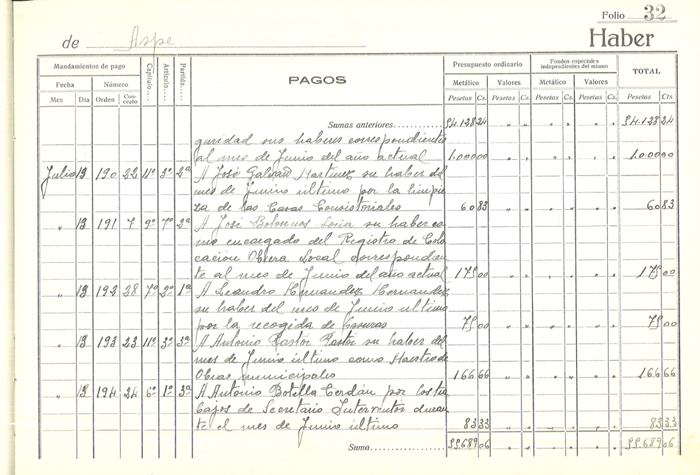 Folio 32
de Aspe
Haber
Mandamientos de pago
Fecha Número
Mes Día Orden Concepto
Capítulo....
Artículo....
Partida....
PAGOS
Presupuesto ordinario
Metálico Valores
Pesetas Cs. Pesetas Cs.
Fondos especiales independientes del mismo
Metálico Valores
Pesetas Cs. Pesetas Cs.
TOTAL
Pesetas Cts.
Sumas anteriores 54.128 24 " " " " " " 54.128 24
guridad sus haberes correspondientes
al mes de Junio del año actual 1.000 00 " " " " " " 1.000 00
Julio 13 190 22 11º 3º 2ª A José Galvañ Martinez su haber del
mes de Junio último por la limpie
za de las Casas Consistoriales 60 83 " " " " " " 60 83
" 13 191 7 9º 7º 2ª A José su haber co
mo encargado del Registro de Colo
cacion Obrera Local correspondien
te al mes de Junio del año actual 175 00 " " " " " " 175 00
" 13 192 28 7º 2º 1ª A Leandro Hernandez Hernandez
su haber del mes de Junio último
por la recogida de basuras 75 00 " " " " " " 75 00
" 13 193 23 11º 3º 3ª A Antonio Pastor Pastor su haber del
mes de Junio último como Maestro de
Obras municipales 166 66 " " " " " " 166 66
" 13 194 24 6º 1º 3ª A Antonio Botella Cerdán por los tra
bajos de Secretario Interventor duran
te el mes de Junio último 83 33 " " " " " " 83 33
Suma 55.689 06 " " " " " " 55.689 06